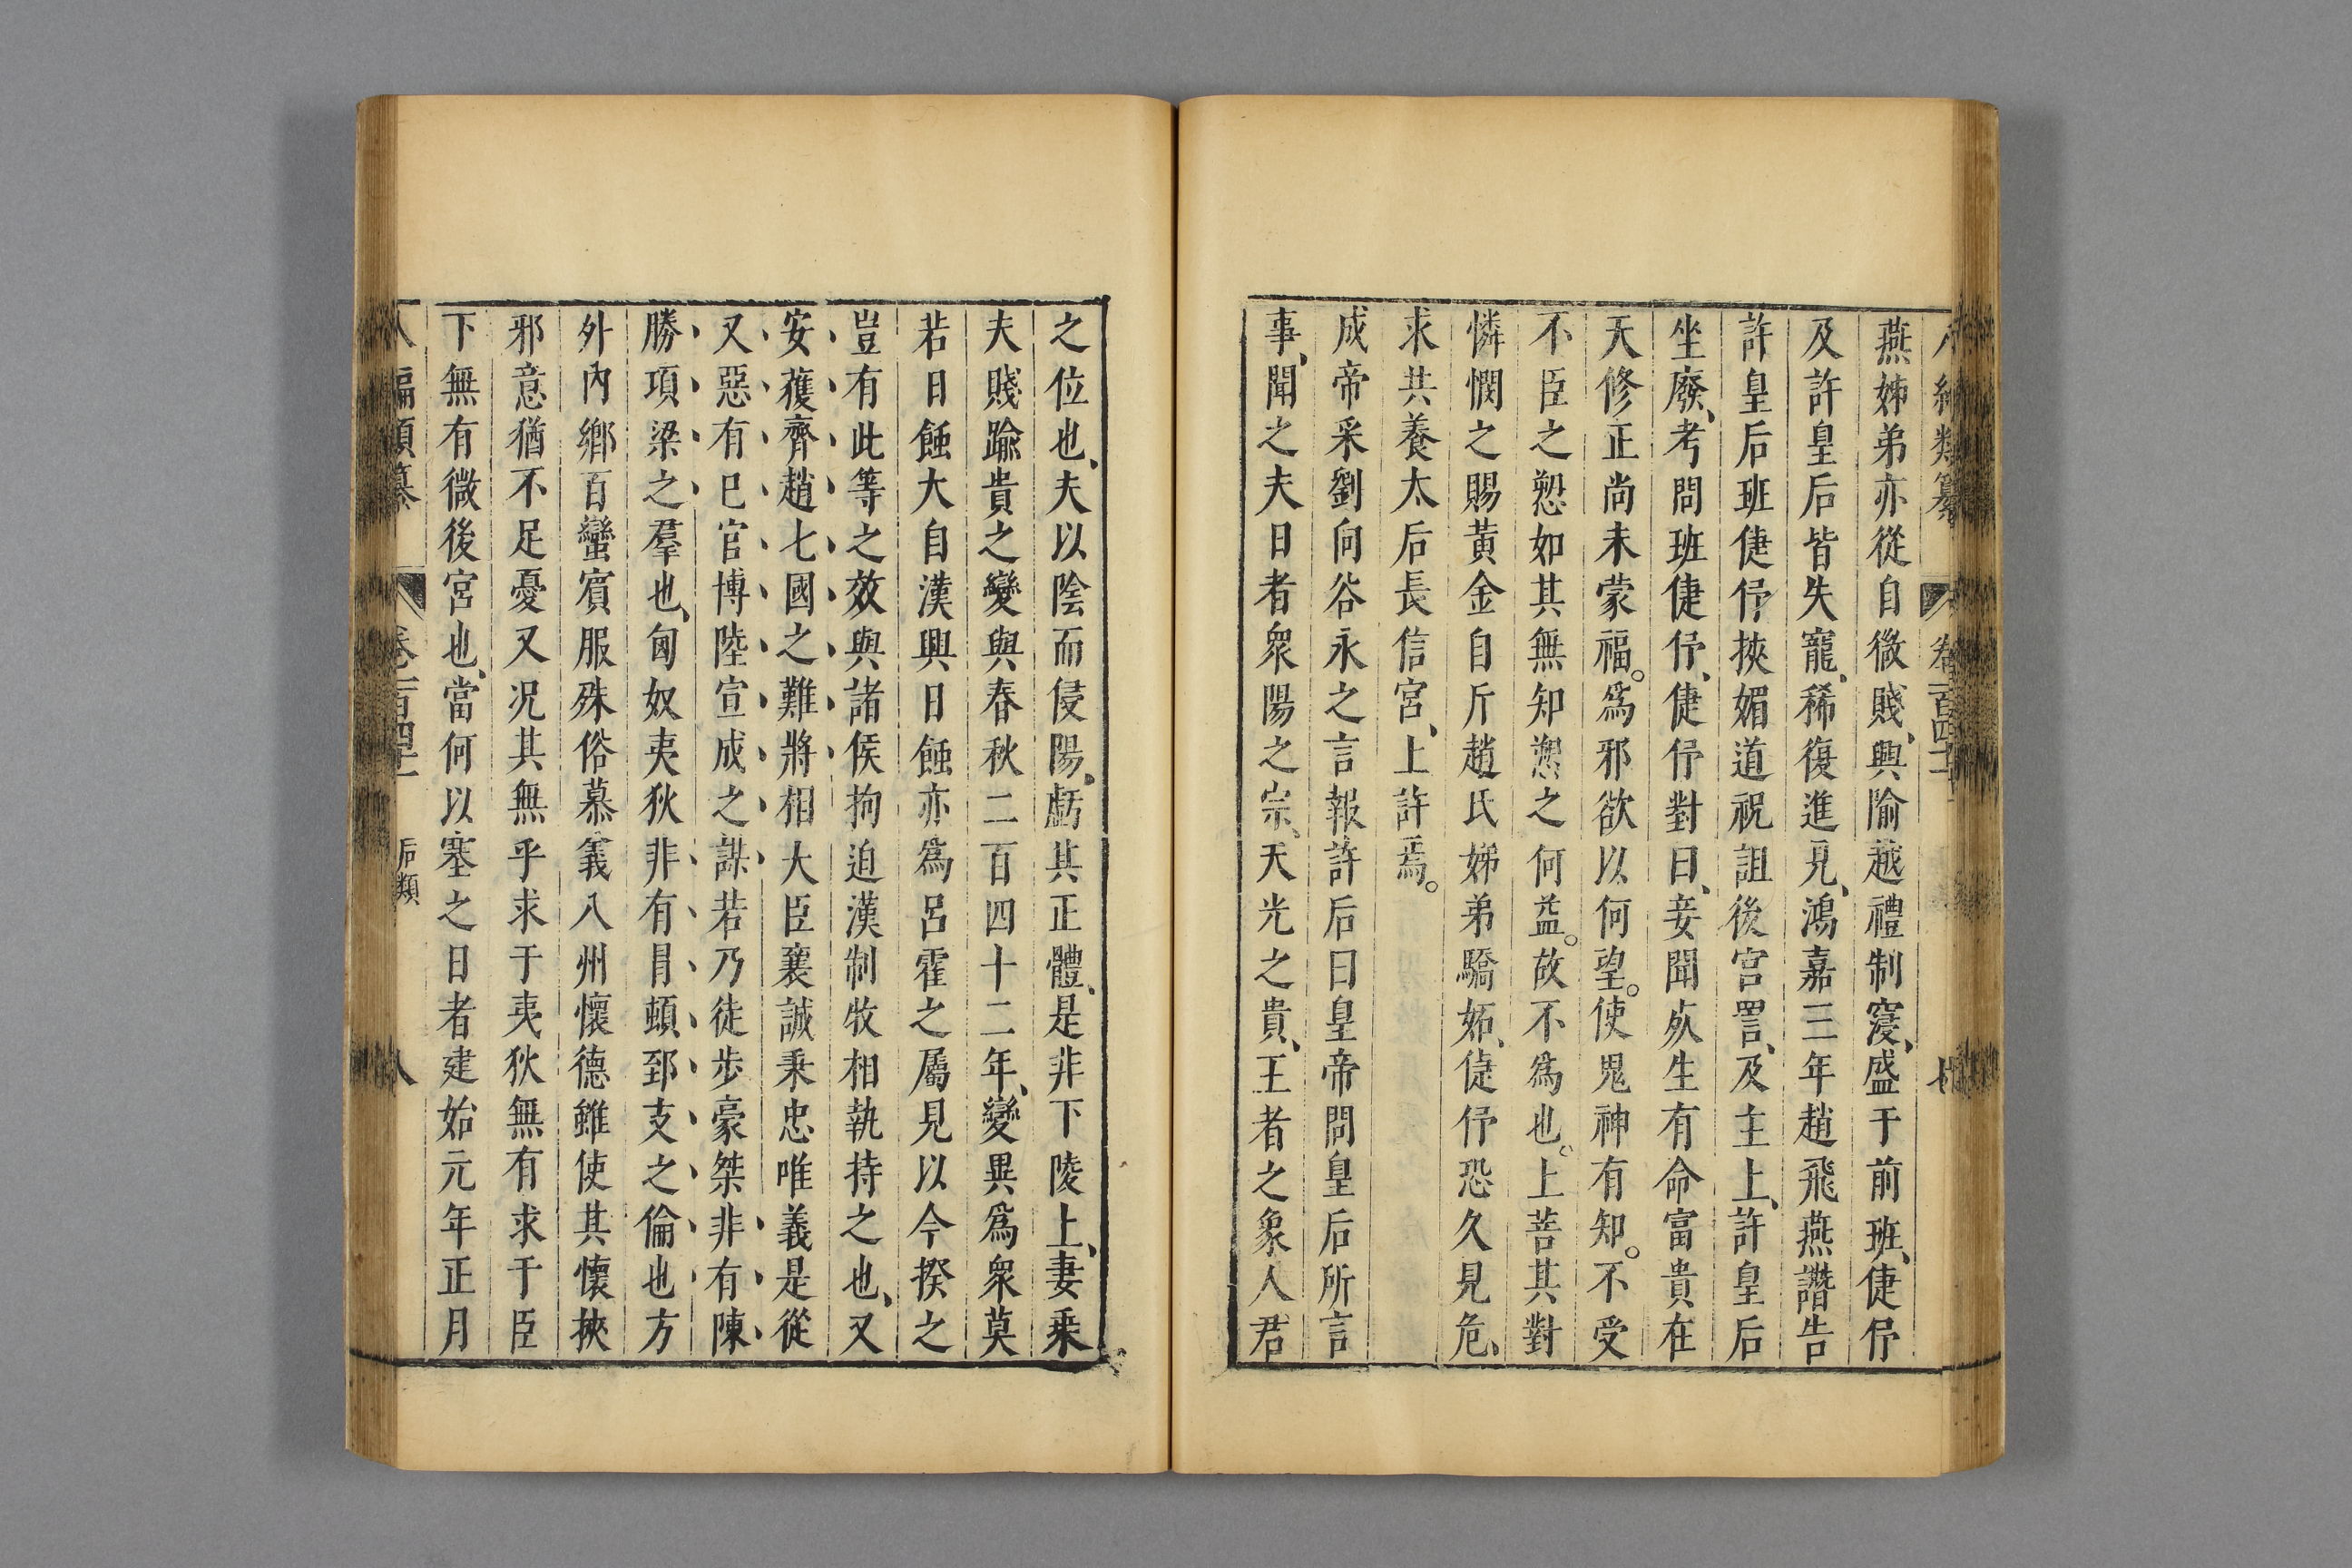 燕姊弟亦從自微賤、興隃越禮制寖、盛于前班、倢伃
及許皇后皆失寵、稀復進見、鴻嘉三年趙飛燕譖告
許皇后班倢伃挾媚道祝詛後宮詈、及主上、許皇后
坐廢、考問班倢伃、倢伃對曰、妾聞死生有命富貴在
天修正尚未蒙福。爲邪欲以何望。使鬼神有知。不受
不臣之愬如其無知愬之何益。故不爲也。上善其對
憐憫之賜黃金自斤趙氏姊弟驕妬、倢伃恐久見危、
求共養太后長信宮、上許焉。
成帝采劉向谷永之言報許后曰皇帝問皇后所言
事、聞之夫日者衆陽之宗、天光之貴、王者之象人君
之位也、夫以陰而侵陽、虧其正體、是非下陵上、妻乘
夫賤踰貴之變與春秋二百四十二年、變異爲衆莫
若日蝕大自漢興日蝕亦爲呂霍之屬見以今揆之
豈有此等之效與諸侯拘迫漢制牧相執持之也、又
安獲齊趙七國之難將相大臣襄誠秉忠唯義是從
又惡有已官博陸宣成之謀若乃徒步豪桀非有陳
勝項梁之羣也、匈奴夷狄非有冒頓郅支之倫也方
外內鄉百蠻賓服殊俗慕義八州懷德雖使其懷挾
邪意猶不足憂又况其無乎求于夷狄無有求于臣
下無有微後宮也、當何以塞之日者建始元年正月
后類
八